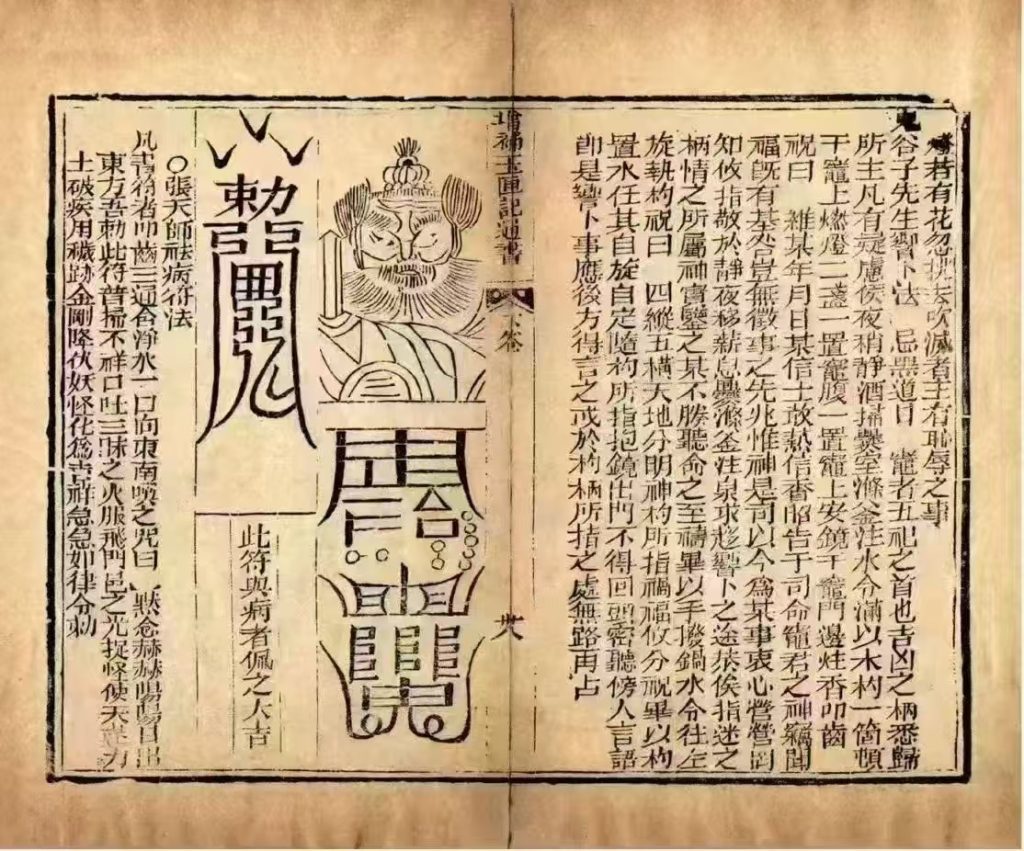 若有花忽被吹滅者主有恥辱之事
鬼谷子先生響卜法 忌黑道日 竈者五祀之首也吉凶之柄悉歸
所主凡有疑慮侯夜稍靜洒掃爨室滌釜注水令滿以木杓一箇頓
于竈上燃燈二盞一置竈腹一置竈上安鏡于竈門邊炷香叩齒
祝曰 維某年月日某信士敢爇信香昭告于司命竈君之神竊聞
福既有基咎豈無徵事之先兆惟神是司以今為某事衷心營營罔
知攸指敬於靜夜移薪息爨滌釜注泉求趍響卜之途恭俟指迷之
柄情之所屬神實鑒之某不勝聽命之至禱畢以手撥鍋水令往左
旋執杓祝曰 四縱五橫天地分明神杓所指禍福攸分祝畢以杓
置水任其自旋自定隨杓所指抱鏡出門不得回頭密聽傍人言語
即是響卜事應後方得言之或於杓柄所指之處無路再占
增補玉匣記通書
卷
廿八
勅
此符與病者佩之大吉
○張天師祛病符法
凡書符者叩齒三通含淨水一口向東南噀之咒曰 默念赫赫陽陽日出
東方吾勅此符普掃不祥口吐三昧之火服飛門邑之光捉怪使天蓬力
士破疾用穢跡金剛降伏妖怪化為吉祥急急如律令勅